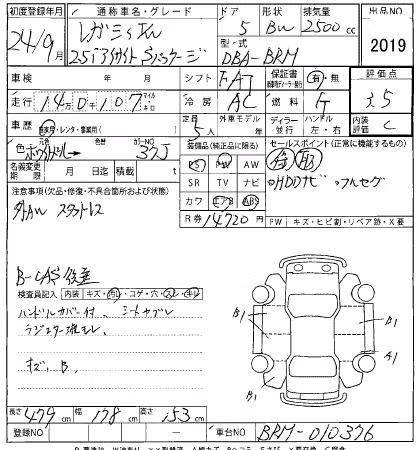 初度登録年月 通称車名・グレード ドア 形状 排気量 出品NO
24/9月 レガシィワゴン 5 BW 2500cc 2019
2.5iアイサイトSパッケージ 型式 DBA-BRM
車検 年 月 シフト FAT 保証書 有・無 評価点
走行 14万0千107 マイル キロ 冷房 AC 燃料 G 3.5
車歴 自家用・レンタ・事業用( ) 定員 5人 外車モデル 年 ディーラー 並行 ハンドル 左・右 内装評価 C
色 元色 ホワイトパール→ 色替 カラーNO 37J
装備品(純正品に限る) セールスポイント(正常に機能するもの)
名義変更期限 月 日 積載 t
PS PW AW
SR TV ナビ
カワ エアB ABS
HDDナビ フルセグ
注意事項(欠品・修復・不具合箇所および状態)
外AW スタットレス
R券 14720円
FW キズ・ヒビ割・リペア跡・X要
B-CAS後送
検査員記入 内装 キズ・
ハンドルカバー付、シートヤブレ
キズ、B
B1 B1 A1 B1
長さ 479cm 幅 178cm 高さ 153cm
登録NO 車台NO BRM-010376